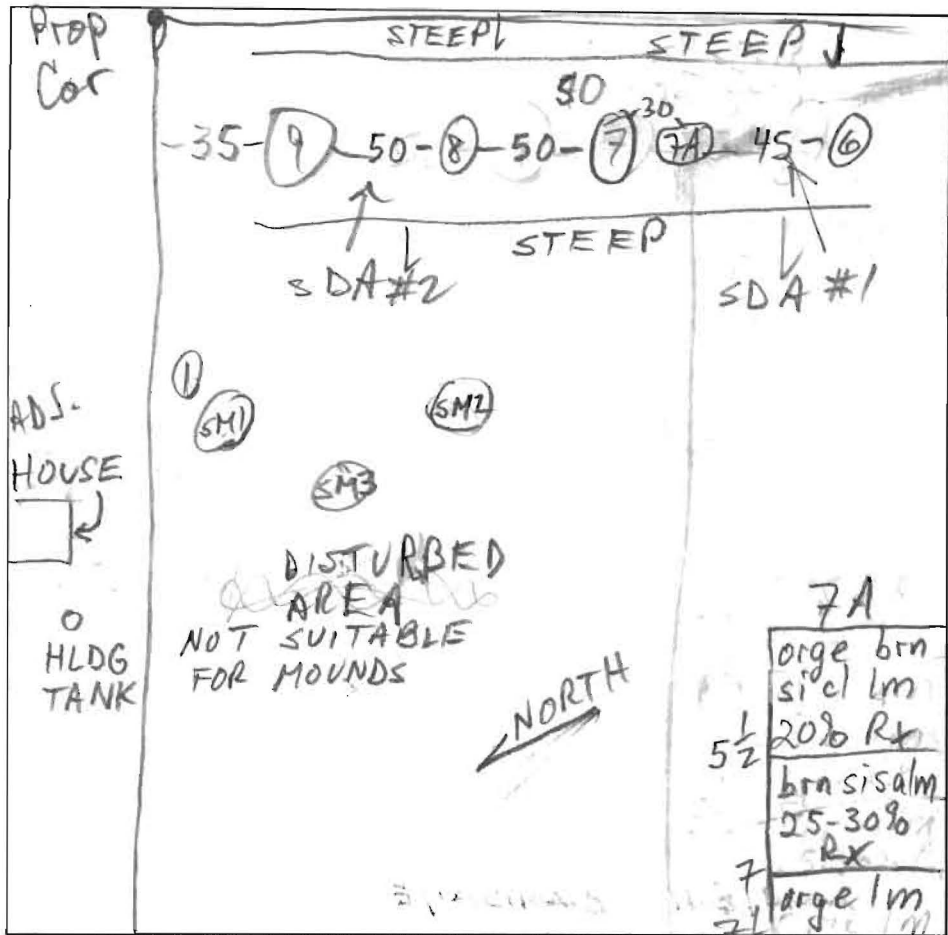 Prop
Cor
STEEP STEEP
50
-35-9-50-8-50-7 30 7A 45-6
STEEP
SDA #2 SDA #1
1
SM1 SM2
ADJ.
HOUSE
SM3
DISTURBED
AREA
NOT SUITABLE
FOR MOUNDS
HLDG
TANK
NORTH
7A
orge brn
si cl lm
20% Rx
5 1/2
brn sisalm
25-30%
Rx
7
orge lm